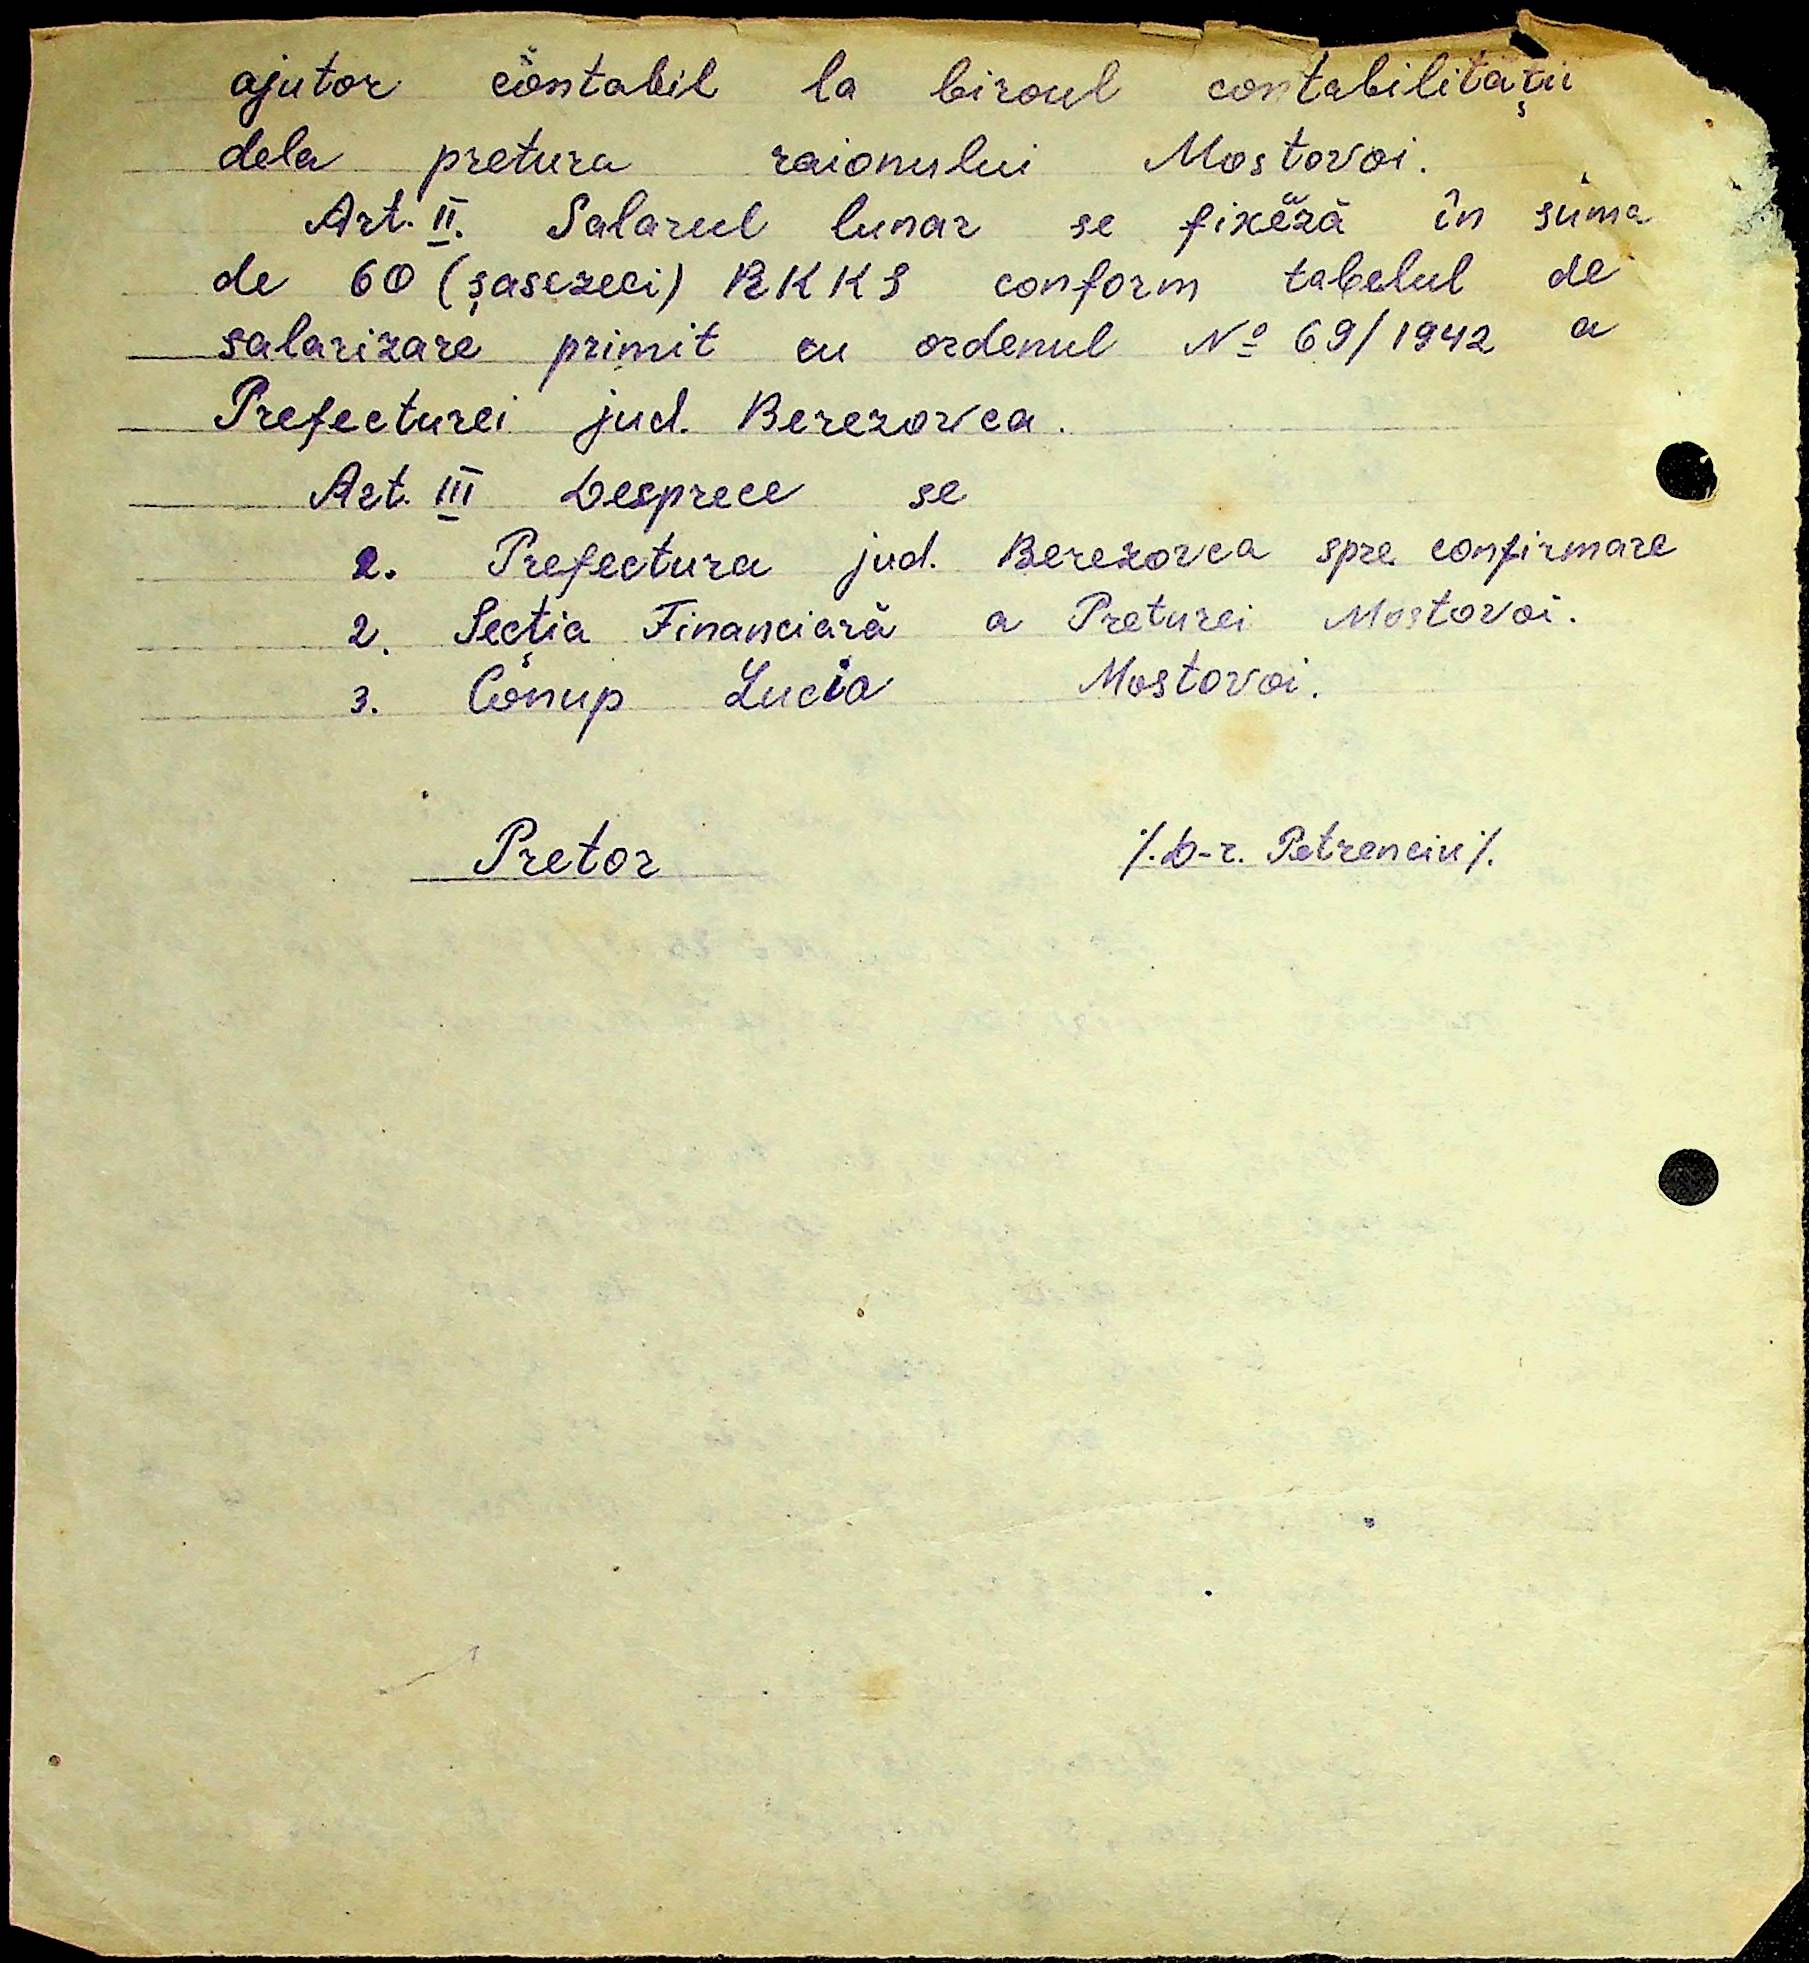 ajutor contabil la biroul contabilităţii
dela pretura raionului Mostovoi.
Art. II. Salarul lunar se fixează în suma
de 60 (şasezeci) RKKS conform tabelul de
salarizare primit cu ordenul Nº 69/1942 a
Prefecturei jud. Berezovca.
Art. III Desprece se
2. Prefectura jud. Berezovca spre confirmare
2. Secţia Financiară a Preturei Mostovoi.
3. Conup Lucia Mostovoi.
Pretor /. D-r. Petrenciu /.